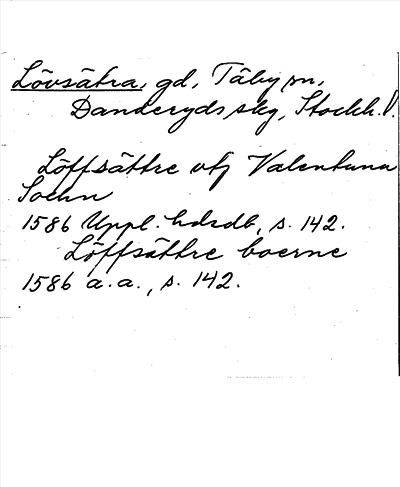 Lövsätra, gd, Täby sn,
Danderyds skg, Stockh. l.
Löffsättre utj Valentuna
Sochn
1586 Uppl. hdrdb, s. 142.
Löffsättre boerne
1586 a. a., s. 142.